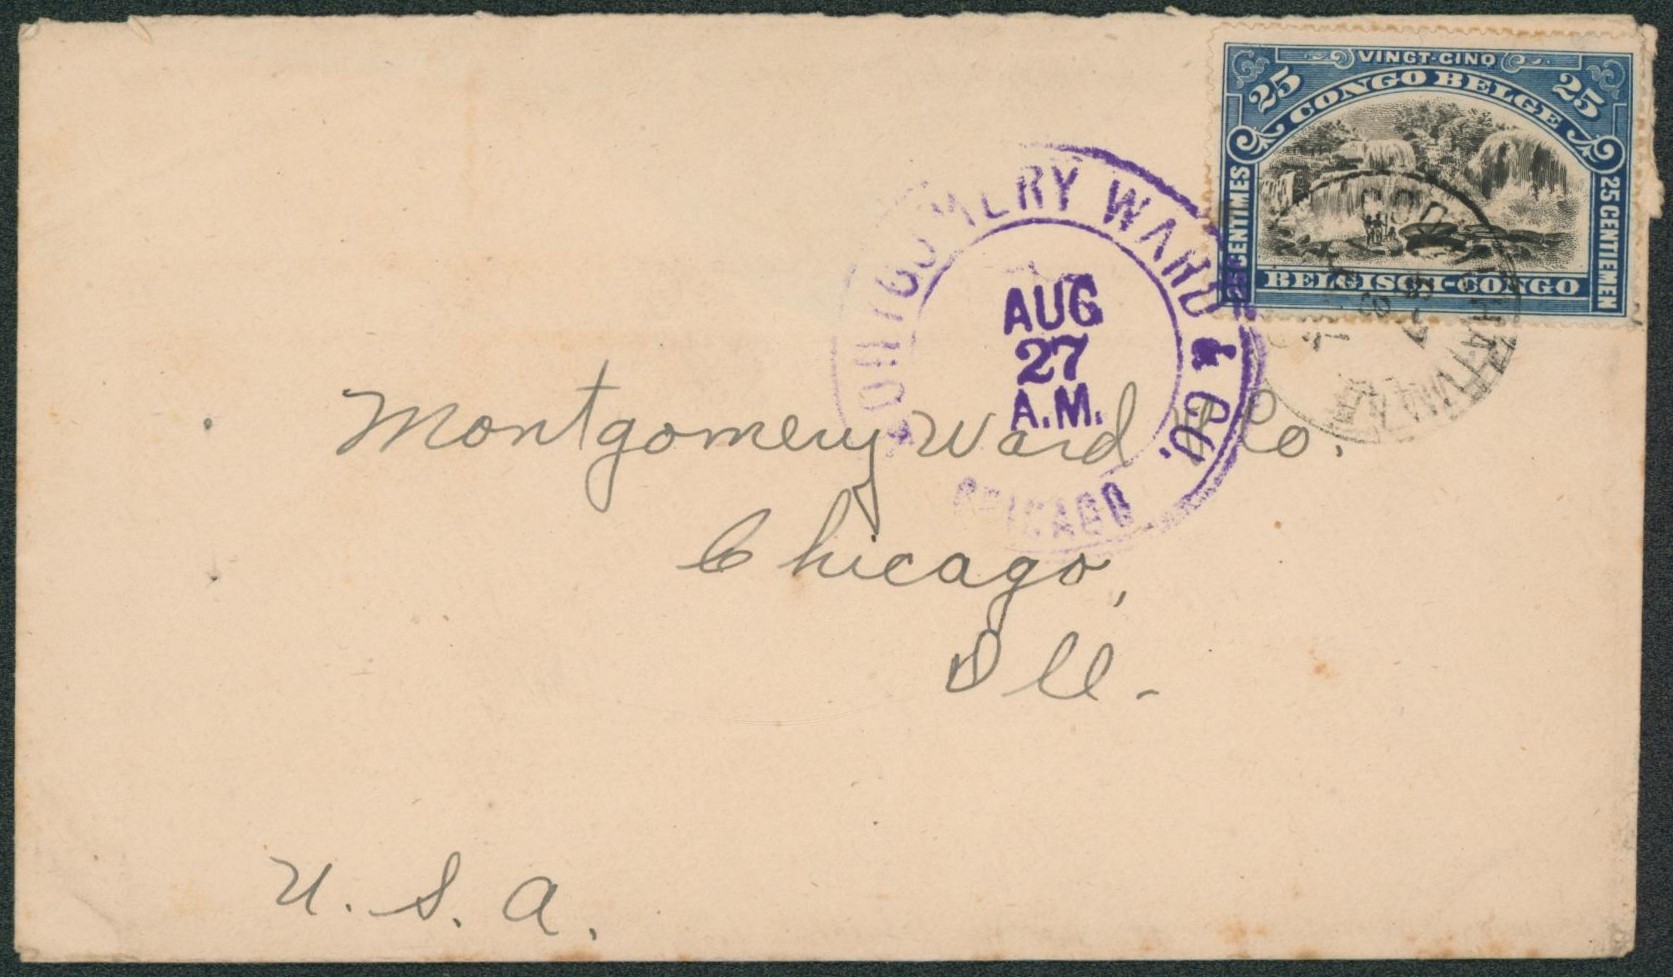 VINGT-CINQ
25 CONGO BELGE 25
25 CENTIMES
25 CENTIEMEN
BELGISCH-CONGO
MONTGOMERY WARD & CO.
AUG
27
A.M.
CHICAGO
Montgomery Ward & Co.
Chicago,
Ill.
U. S. A.